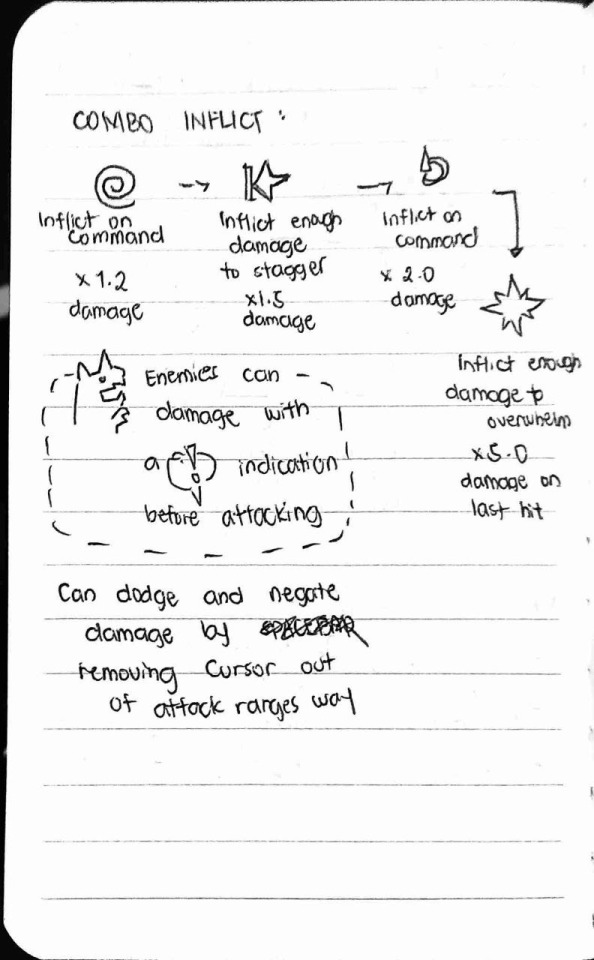 COMBO INFLICT :
Inflict on
command
x 1.2
damage
Inflict enogh
damage
to stagger
x1.5
damage
inflict on
command
x 2.0
damage
Inflict enough
damage to
overwhelm
x5.0
damage on
last hit
Enemies can
damage with
a ! indication
before attacking
Can dodge and negate
damage by
removing Cursor out
of attack ranges way